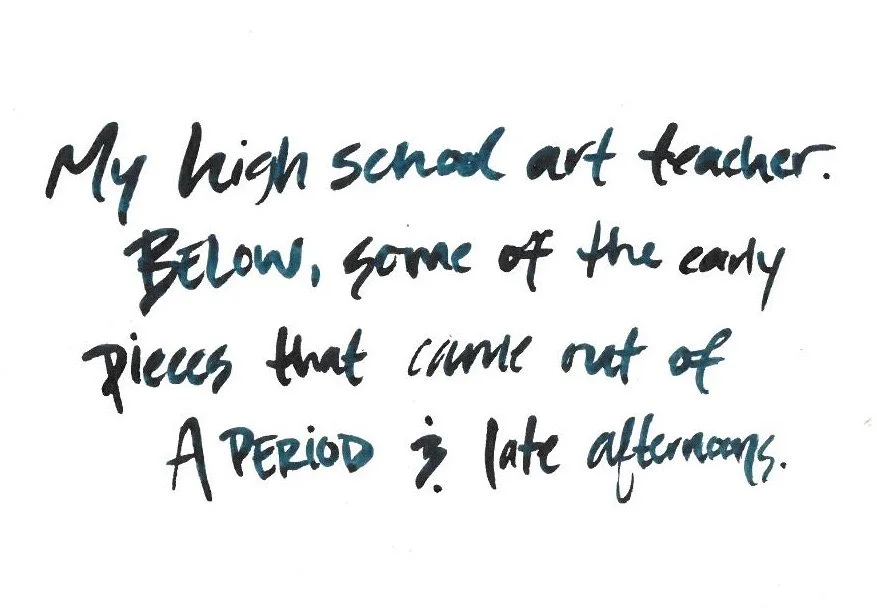 My high school art teacher.
BELOW, some of the early
pieces that came out of
A PERIOD & late afternoons.